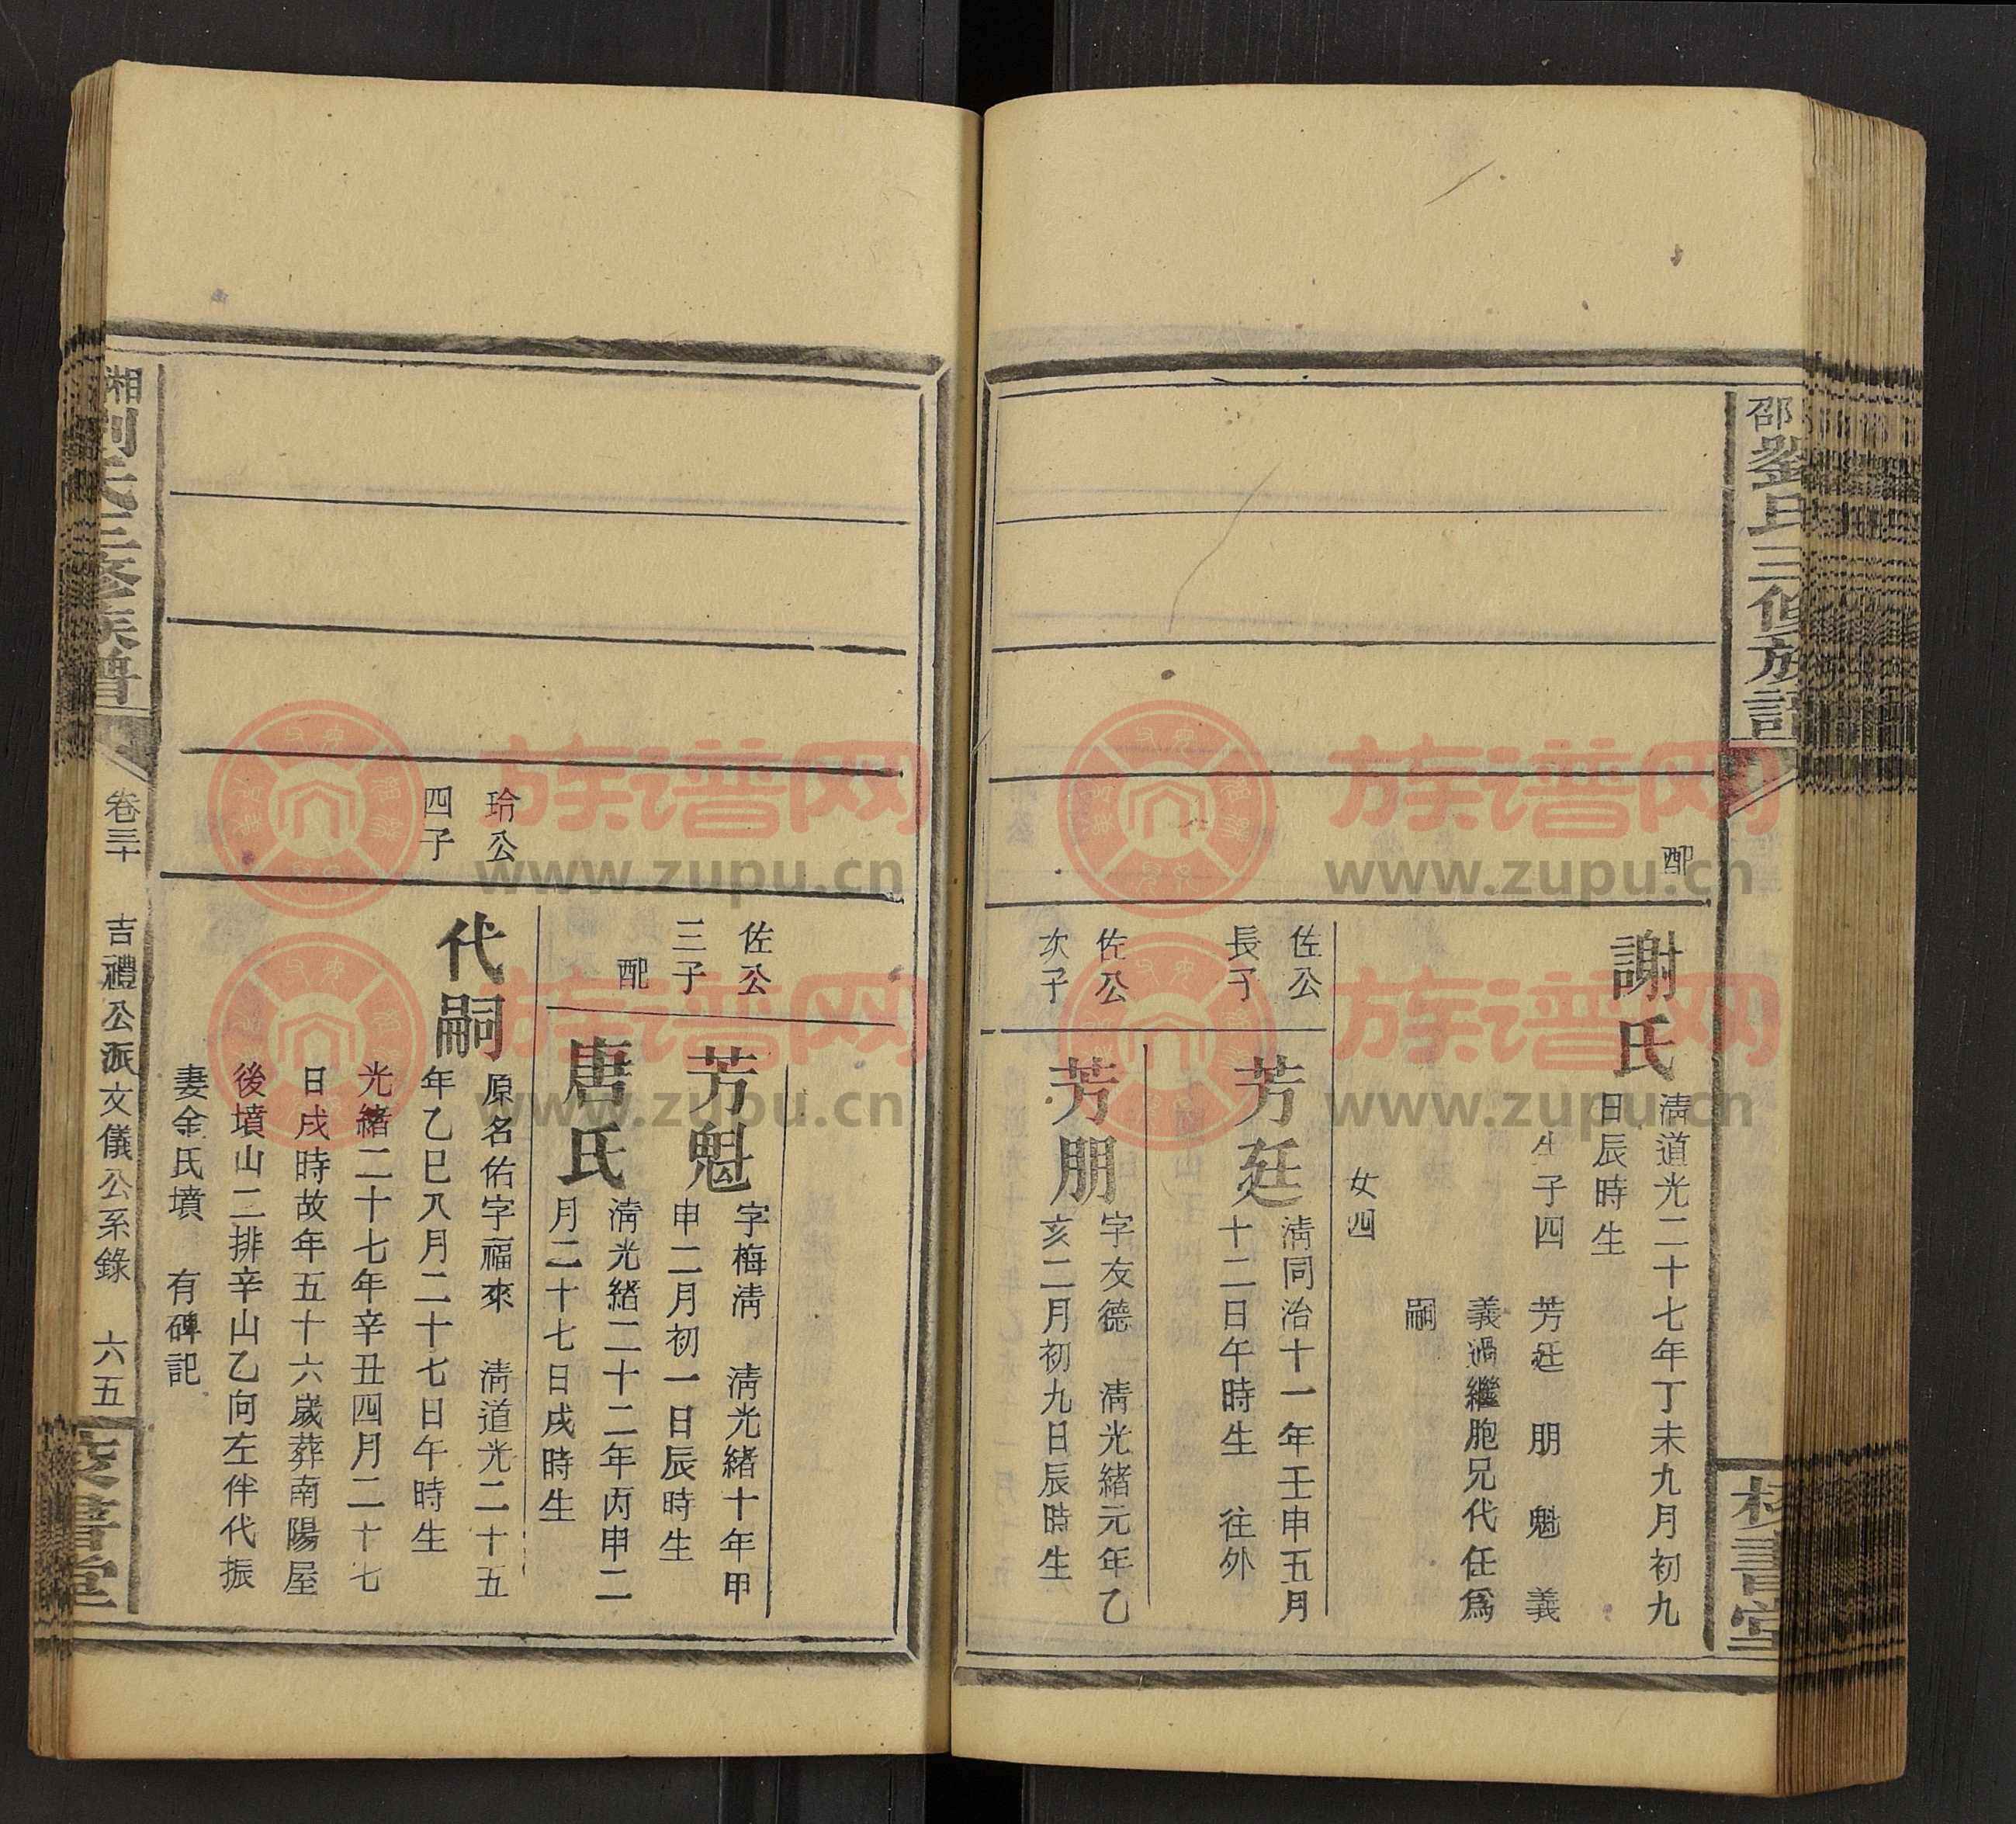 邵劉氏三修族譜
校書堂
配
謝氏
清道光二十七年丁未九月初九
日辰時生
生子四 芳廷 朋 魁 義
義過繼胞兄代任爲
嗣
女四
佐公
長子
芳廷
清同治十一年壬申五月
十二日午時生 往外
佐公
次子
芳朋
字友德 清光緒元年乙
亥二月初九日辰時生
佐公
三子
芳魁
字梅清 清光緒十年甲
申二月初一日辰時生
配
唐氏
清光緒二十二年丙申二
月二十七日戌時生
玲公
四子
代嗣
原名佑字福來 清道光二十五
年乙巳八月二十七日午時生
光緒二十七年辛丑四月二十七
日戌時故年五十六歲葬南陽屋
後墳山二排辛山乙向左伴代振
妻金氏墳 有碑記
湘劉氏三修族譜
卷三十 吉禮公派文儀公系錄 六五
校書堂
族谱网
www.zupu.cn
族谱网
www.zupu.cn
族谱网
www.zupu.cn
族谱网
www.zupu.cn